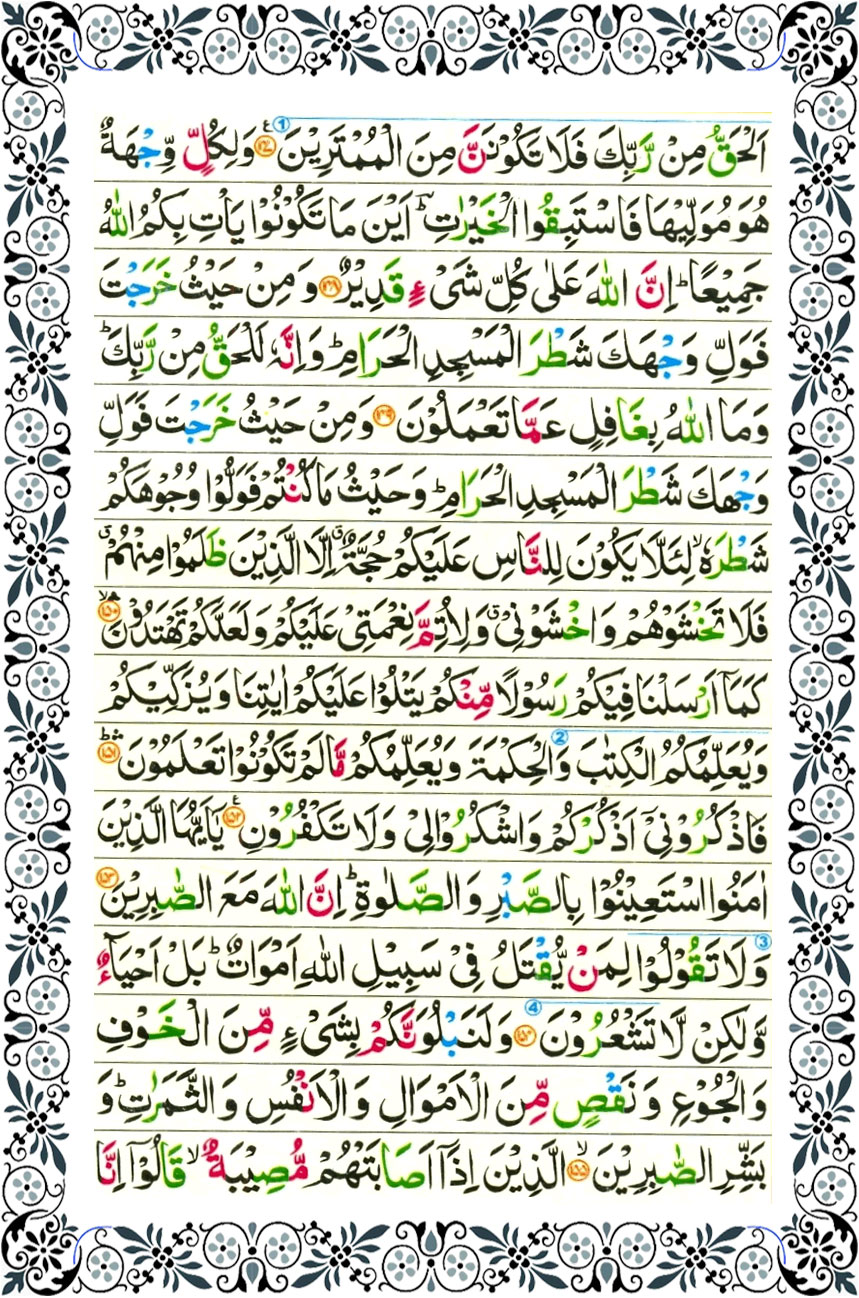 اَلْحَقُّ مِنْ رَّبِّكَ فَلَا تَكُوْنَنَّ مِنَ الْمُمْتَرِيْنَ ﴿۱۴۷﴾ ع ① وَلِكُلٍّ وِّجْهَةٌ
هُوَ مُوَلِّيْهَا فَاسْتَبِقُوا الْخَيْرٰتِ ؕ اَيْنَ مَا تَكُوْنُوْا يَاْتِ بِكُمُ اللّٰهُ
جَمِيْعًا ؕ اِنَّ اللّٰهَ عَلٰى كُلِّ شَىْءٍ قَدِيْرٌ ﴿۱۴۸﴾ وَمِنْ حَيْثُ خَرَجْتَ
فَوَلِّ وَجْهَكَ شَطْرَ الْمَسْجِدِ الْحَرَامِ ؕ وَاِنَّهٗ لَلْحَقُّ مِنْ رَّبِّكَ ؕ
وَمَا اللّٰهُ بِغَافِلٍ عَمَّا تَعْمَلُوْنَ ﴿۱۴۹﴾ وَمِنْ حَيْثُ خَرَجْتَ فَوَلِّ
وَجْهَكَ شَطْرَ الْمَسْجِدِ الْحَرَامِ ؕ وَحَيْثُ مَا كُنْتُمْ فَوَلُّوْا وُجُوْهَكُمْ
شَطْرَهٗ ۙ لِئَلَّا يَكُوْنَ لِلنَّاسِ عَلَيْكُمْ حُجَّةٌ ۗ اِلَّا الَّذِيْنَ ظَلَمُوْا مِنْهُمْ ۗ
فَلَا تَخْشَوْهُمْ وَاخْشَوْنِىْ ۗ وَلِاُتِمَّ نِعْمَتِىْ عَلَيْكُمْ وَلَعَلَّكُمْ تَهْتَدُوْنَ ۙ ﴿۱۵۰﴾
كَمَاۤ اَرْسَلْنَا فِيْكُمْ رَسُوْلًا مِّنْكُمْ يَتْلُوْا عَلَيْكُمْ اٰيٰتِنَا وَيُزَكِّيْكُمْ
وَيُعَلِّمُكُمُ الْكِتٰبَ ② وَالْحِكْمَةَ وَيُعَلِّمُكُمْ مَّا لَمْ تَكُوْنُوْا تَعْلَمُوْنَ ؕ ﴿۱۵۱﴾
فَاذْكُرُوْنِىْۤ اَذْكُرْكُمْ وَاشْكُرُوْا لِىْ وَلَا تَكْفُرُوْنِ ﴿۱۵۲﴾ ع يٰۤاَيُّهَا الَّذِيْنَ
اٰمَنُوا اسْتَعِيْنُوْا بِالصَّبْرِ وَالصَّلٰوةِ ؕ اِنَّ اللّٰهَ مَعَ الصّٰبِرِيْنَ ﴿۱۵۳﴾
③ وَلَا تَقُوْلُوْا لِمَنْ يُّقْتَلُ فِىْ سَبِيْلِ اللّٰهِ اَمْوَاتٌ ؕ بَلْ اَحْيَآءٌ
وَّلٰكِنْ لَّا تَشْعُرُوْنَ ﴿۱۵۴﴾ ④ وَلَنَبْلُوَنَّكُمْ بِشَىْءٍ مِّنَ الْخَوْفِ
وَالْجُوْعِ وَنَقْصٍ مِّنَ الْاَمْوَالِ وَالْاَنْفُسِ وَالثَّمَرٰتِ ؕ وَ
بَشِّرِ الصّٰبِرِيْنَ ۙ ﴿۱۵۵﴾ الَّذِيْنَ اِذَاۤ اَصَابَتْهُمْ مُّصِيْبَةٌ ۙ قَالُوْۤا اِنَّا